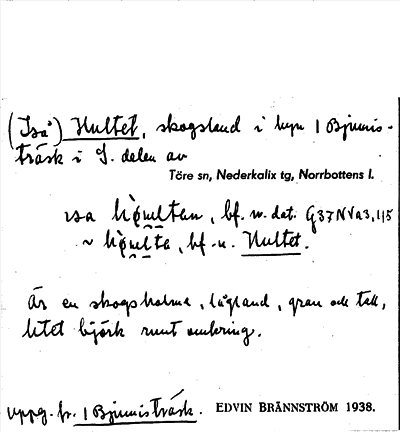 (Iså) Hultet, skogsland i byn 1 Bjumis-
träsk i S. delen av
Töre sn, Nederkalix tg, Norrbottens l.
bf. n. dat. G37NVa3,1,5
~ bf. n. Hultet.
Är en skogsholma, lågland, gran och tall,
litet björk runt omkring.
uppg. fr. 1 Bjumisträsk. EDVIN BRÄNNSTRÖM 1938.